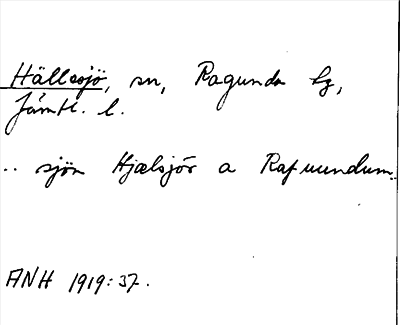 Hällesjö, sn, Ragunda hg,
Jämtl. l.
.. sjön Hjælsjór a Rafuundum..
ANH 1919:37.